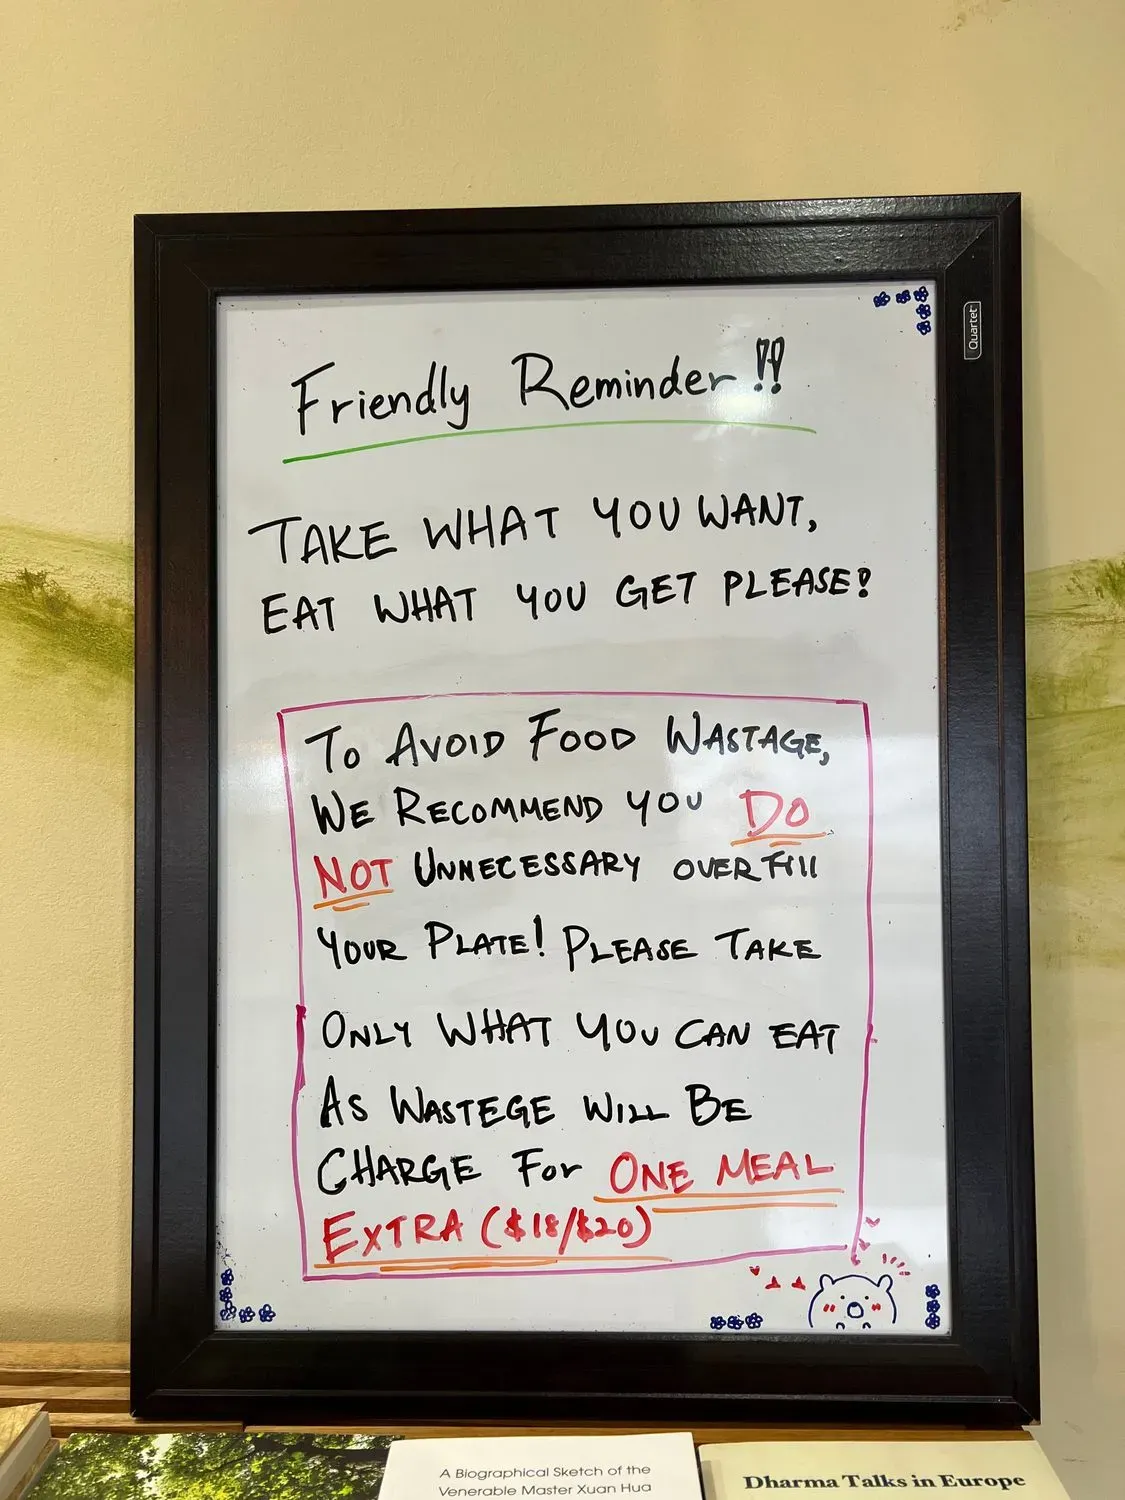 Quartet
Friendly Reminder!!
TAKE WHAT YOU WANT,
EAT WHAT YOU GET PLEASE!
To AVOID FOOD WASTAGE,
WE RECOMMEND YOU DO
NOT UNNECESSARY OVERFill
YOUR PLATE! PLEASE TAKE
ONLY WHAT YOU CAN EAT
AS WASTEGE WILL BE
CHARGE For ONE MEAL
EXTRA ($18/$20)
A Biographical Sketch of the
Venerable Master Xuan Hua
Dharma Talks in Europe